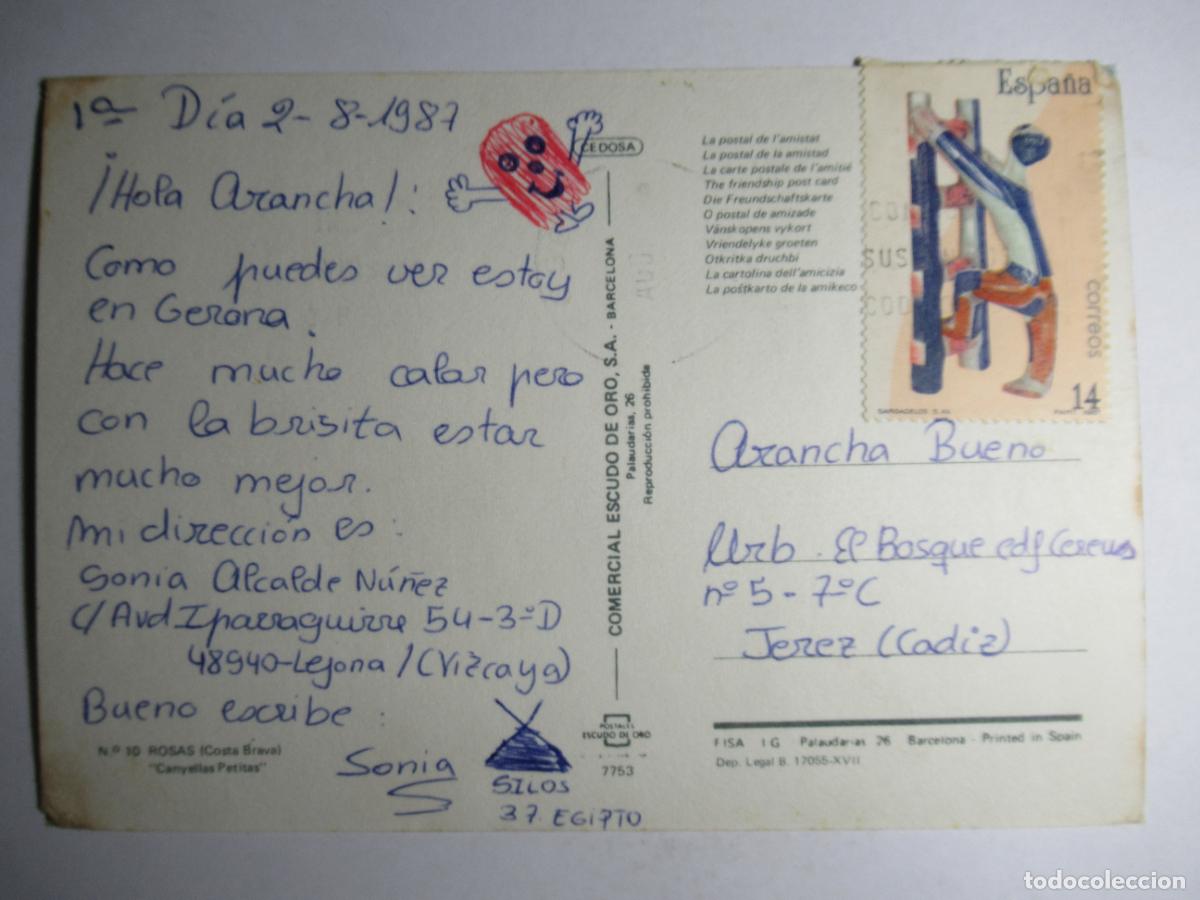 1ª Día 2-8-1987
¡Hola Arancha!:
Como puedes ver estoy
en Gerona.
Hace mucho calor pero
con la brisita estar
mucho mejor.
mi dirección es:
Sonia Alcalde Núñez
C/ Avd Iparraguirre 54-3ºD
48940-Lejona/(Vizcaya)
Bueno escribe:
Sonia
SILOS
37. EGIPTO
N.º 10 ROSAS (Costa Brava)
"Canyellas Petitas"
CEDOSA
COMERCIAL ESCUDO DE ORO, S.A. - BARCELONA
Palaudarias, 26
Reproducción prohibida
POSTALES
ESCUDO DE ORO
7753
La postal de l'amistat
La postal de la amistad
La carte postale de l'amitié
The friendship post card
Die Freundschaftskarte
O postal de amizade
Vänskopens vykort
Vriendelyke groeten
Otkritka druchbi
La cartolina dell'amicizia
La poŝtkarto de la amikeco
España
correos
14
SARGADELOS S. XX
AUG
SUS
Arancha Bueno
Urb. El Bosque edf Cereus
nº 5 - 7ºC
Jerez (Cadiz)
FISA I G Palaudarias 26 Barcelona - Printed in Spain
Dep. Legal B. 17055-XVII
todocoleccion